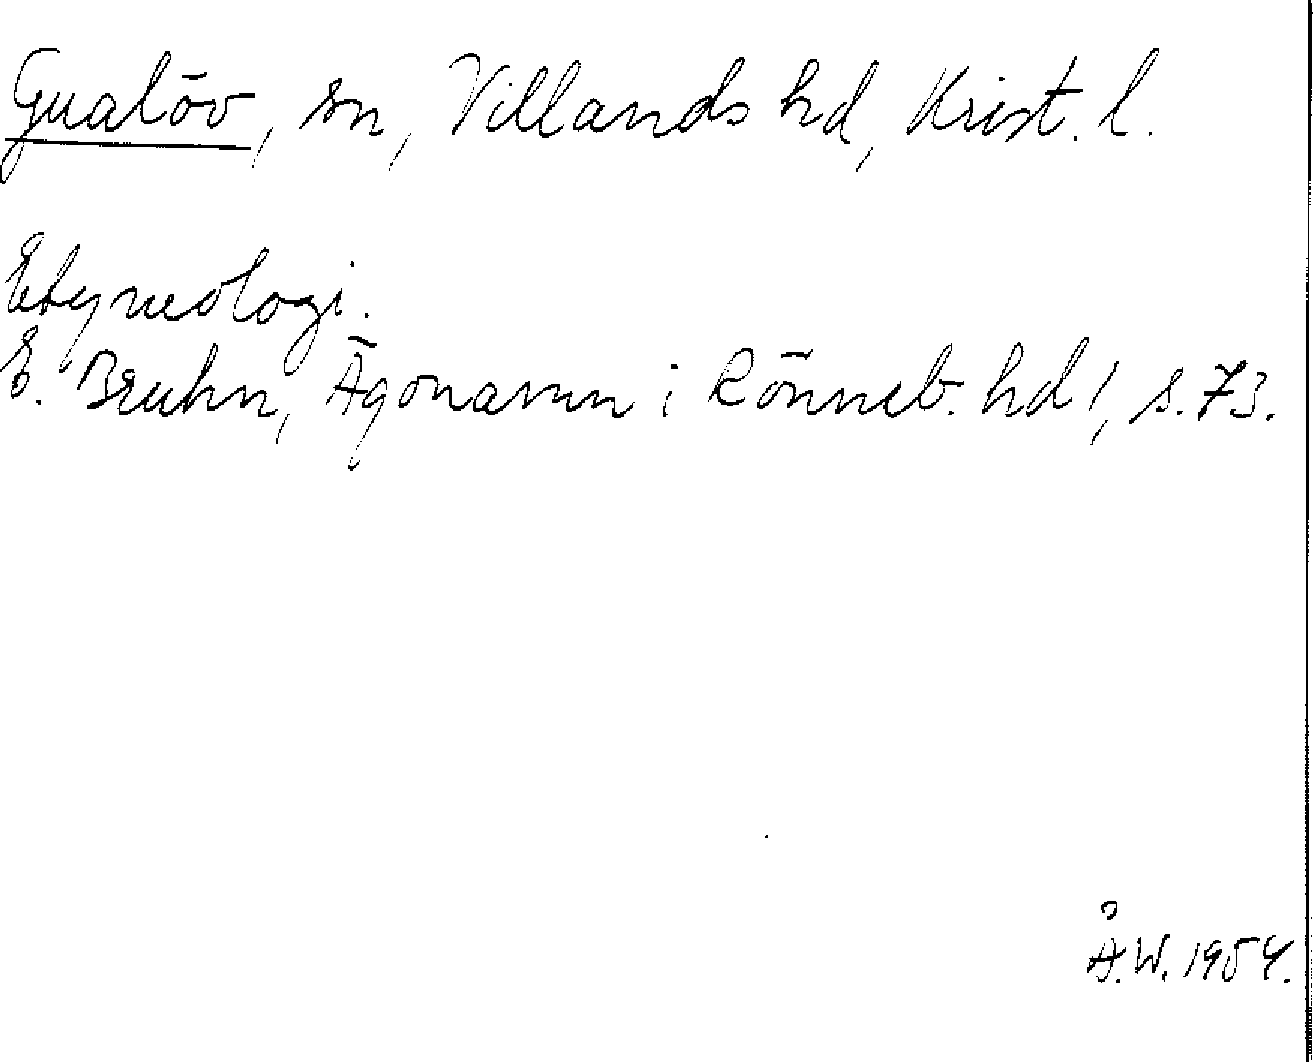 Gualöv, sn, Villands hd, Krist. l.
Etymologi.
E. Bruhn, Ägonamn i Rönneb. hd 1, s. 73.
Å.W. 1954.